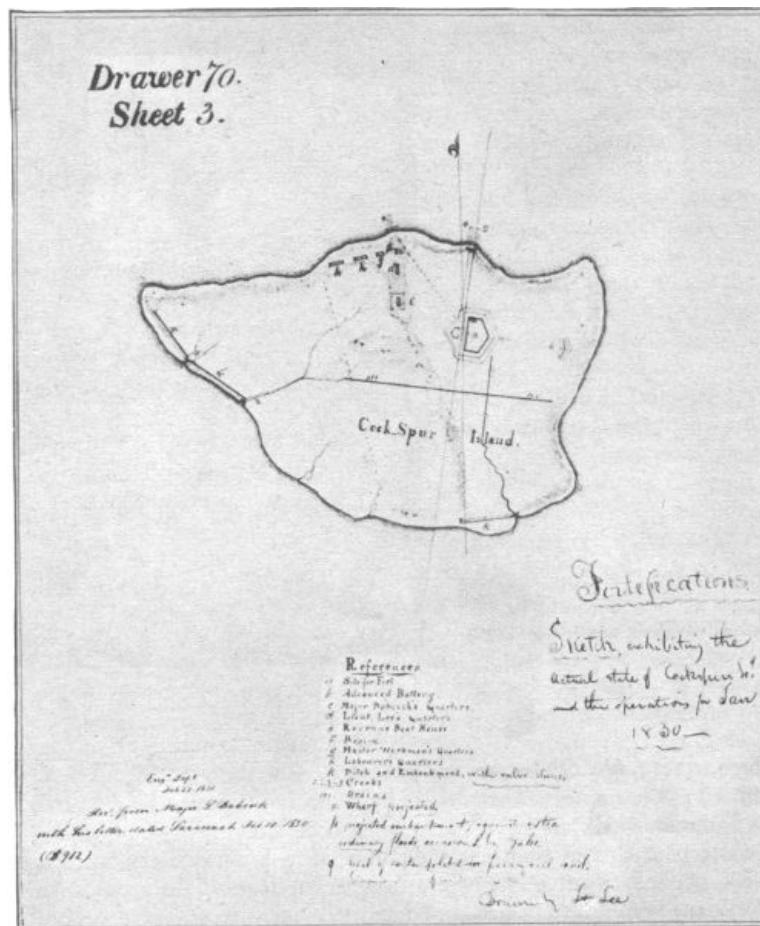 Drawer 70.
Sheet 3.
Cock Spur Island.
Fortifications
Sketch, exhibiting the
actual state of Cockspur Isd
and the operations for Jan
1830
References
a Site for Fort
b Advanced Battery
c Major Babcock's Quarters
d Lieut. Lee's Quarters
e Revenue Boat House
g Master Workmen's Quarters
h Labourers Quarters
k Ditch and Embankment, with valve sluices
Creeks
m Drains
o Wharf projected
p projected embankment, against extra
ordinary floods occasioned by Gales
q
Engr Dept
Recd. from Major S. Babcock
with his letter dated Savannah 1830
(B 912)
Drawn by Lt Lee